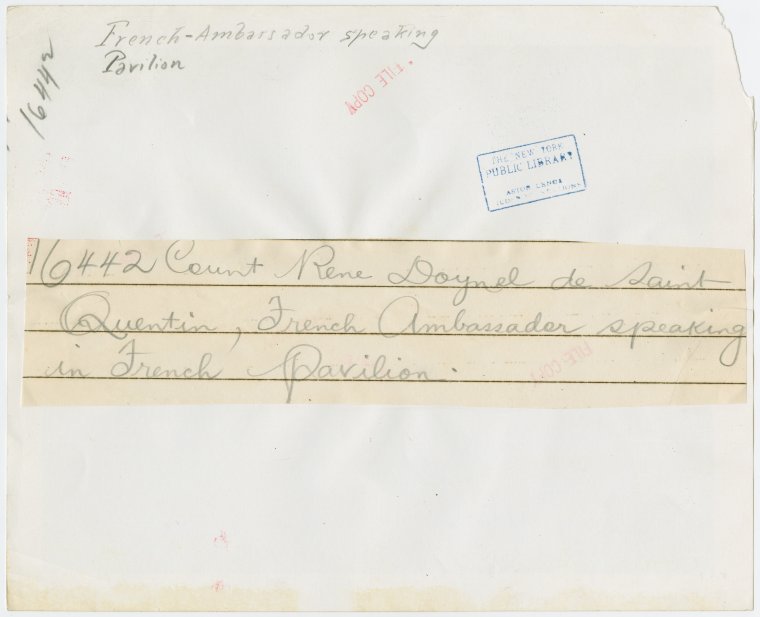 French-Ambassador speaking
Pavilion
16442
FILE COPY
THE NEW YORK
PUBLIC LIBRARY
ASTOR LENOX
16442 Count Rene Doynel de Saint
Quentin, French Ambassador speaking
in French Pavilion.
FILE COPY